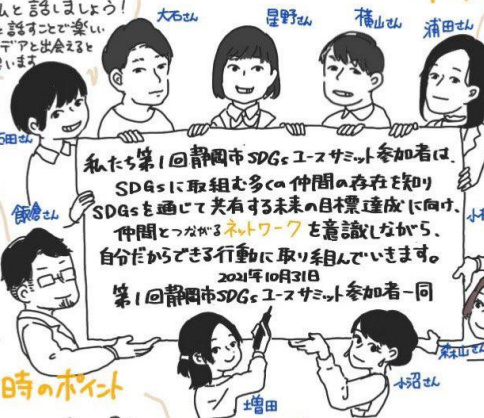 ムと話しましょう！
と話すことで楽しい
デアと出会えると
います
大石さん
星野さん
横山さん
浦田さん
石田さん
飯倉さん
私たち第1回静岡市SDGsユースサミット参加者は、
SDGsに取組む多くの仲間の存在を知り
SDGsを通じて共有する未来の目標達成に向け、
仲間とつながるネットワークを意識しながら、
自分だからできる行動に取り組んでいきます。
2021年10月31日
第1回静岡市SDGsユースサミット参加者一同
森山さん
小沼さん
増田
時のポイント